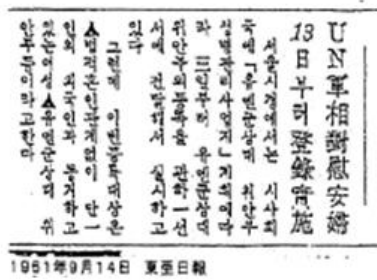 UN軍相對慰安婦
13日부터登錄實施
서울시경에서는 시사회
국에『유엔군상대 위안부
성병관리사업지』계획에따
라 유엔군상대
위안부의등록을 관할一선
서에 실시하고
있다
그런데 이번등록대상은
▲법적혼인관계없이 단一
인의 외국인과 동거하고
있는여성 ▲유엔군상대 위
안부등이라고한다
1961年9月14日 東亜日報